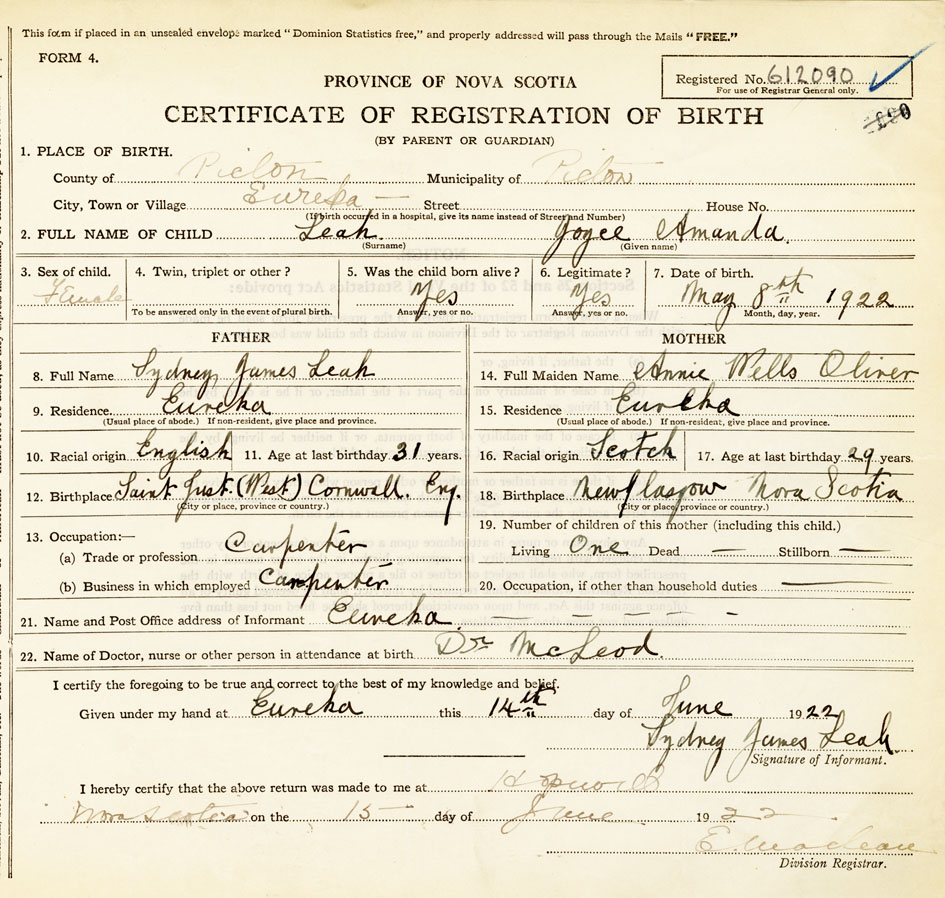 This form if placed in an unsealed envelope marked "Dominion Statistics free," and properly addressed will pass through the Mails "FREE."
FORM 4.
Registered No. 612090
For use of Registrar General only.
PROVINCE OF NOVA SCOTIA
CERTIFICATE OF REGISTRATION OF BIRTH
(BY PARENT OR GUARDIAN)
1. PLACE OF BIRTH.
County of Pictou Municipality of Pictou
City, Town or Village Eureka — Street House No.
(If birth occurred in a hospital, give its name instead of Street and Number)
2. FULL NAME OF CHILD Leah. Joyce Amanda.
(Surname) (Given name)
3. Sex of child. 4. Twin, triplet or other? 5. Was the child born alive? 6. Legitimate? 7. Date of birth.
Female Yes Yes May 8th 1922
To be answered only in the event of plural birth. Answer, yes or no. Answer, yes or no. Month, day, year.
FATHER MOTHER
8. Full Name Sydney James Leah 14. Full Maiden Name Annie Wells Oliver
9. Residence Eureka 15. Residence Eureka
(Usual place of abode.) If non-resident, give place and province. (Usual place of abode.) If non-resident, give place and province.
10. Racial origin English 11. Age at last birthday 31 years. 16. Racial origin Scotch 17. Age at last birthday 29 years.
12. Birthplace Saint Just. (West) Cornwall. Eng. 18. Birthplace New Glasgow Nova Scotia
(City or place, province or country.) (City or place, province or country.)
13. Occupation:— 19. Number of children of this mother (including this child.)
(a) Trade or profession Carpenter Living One Dead — Stillborn —
(b) Business in which employed Carpenter 20. Occupation, if other than household duties —
21. Name and Post Office address of Informant Eureka. — — — — —
22. Name of Doctor, nurse or other person in attendance at birth Dr McLeod.
I certify the foregoing to be true and correct to the best of my knowledge and belief.
Given under my hand at Eureka this 14th day of June 1922
Sydney James Leah.
Signature of Informant.
I hereby certify that the above return was made to me at Hopewell
Nova Scotia on the 15 day of June 1922
E. Maclean
Division Registrar.